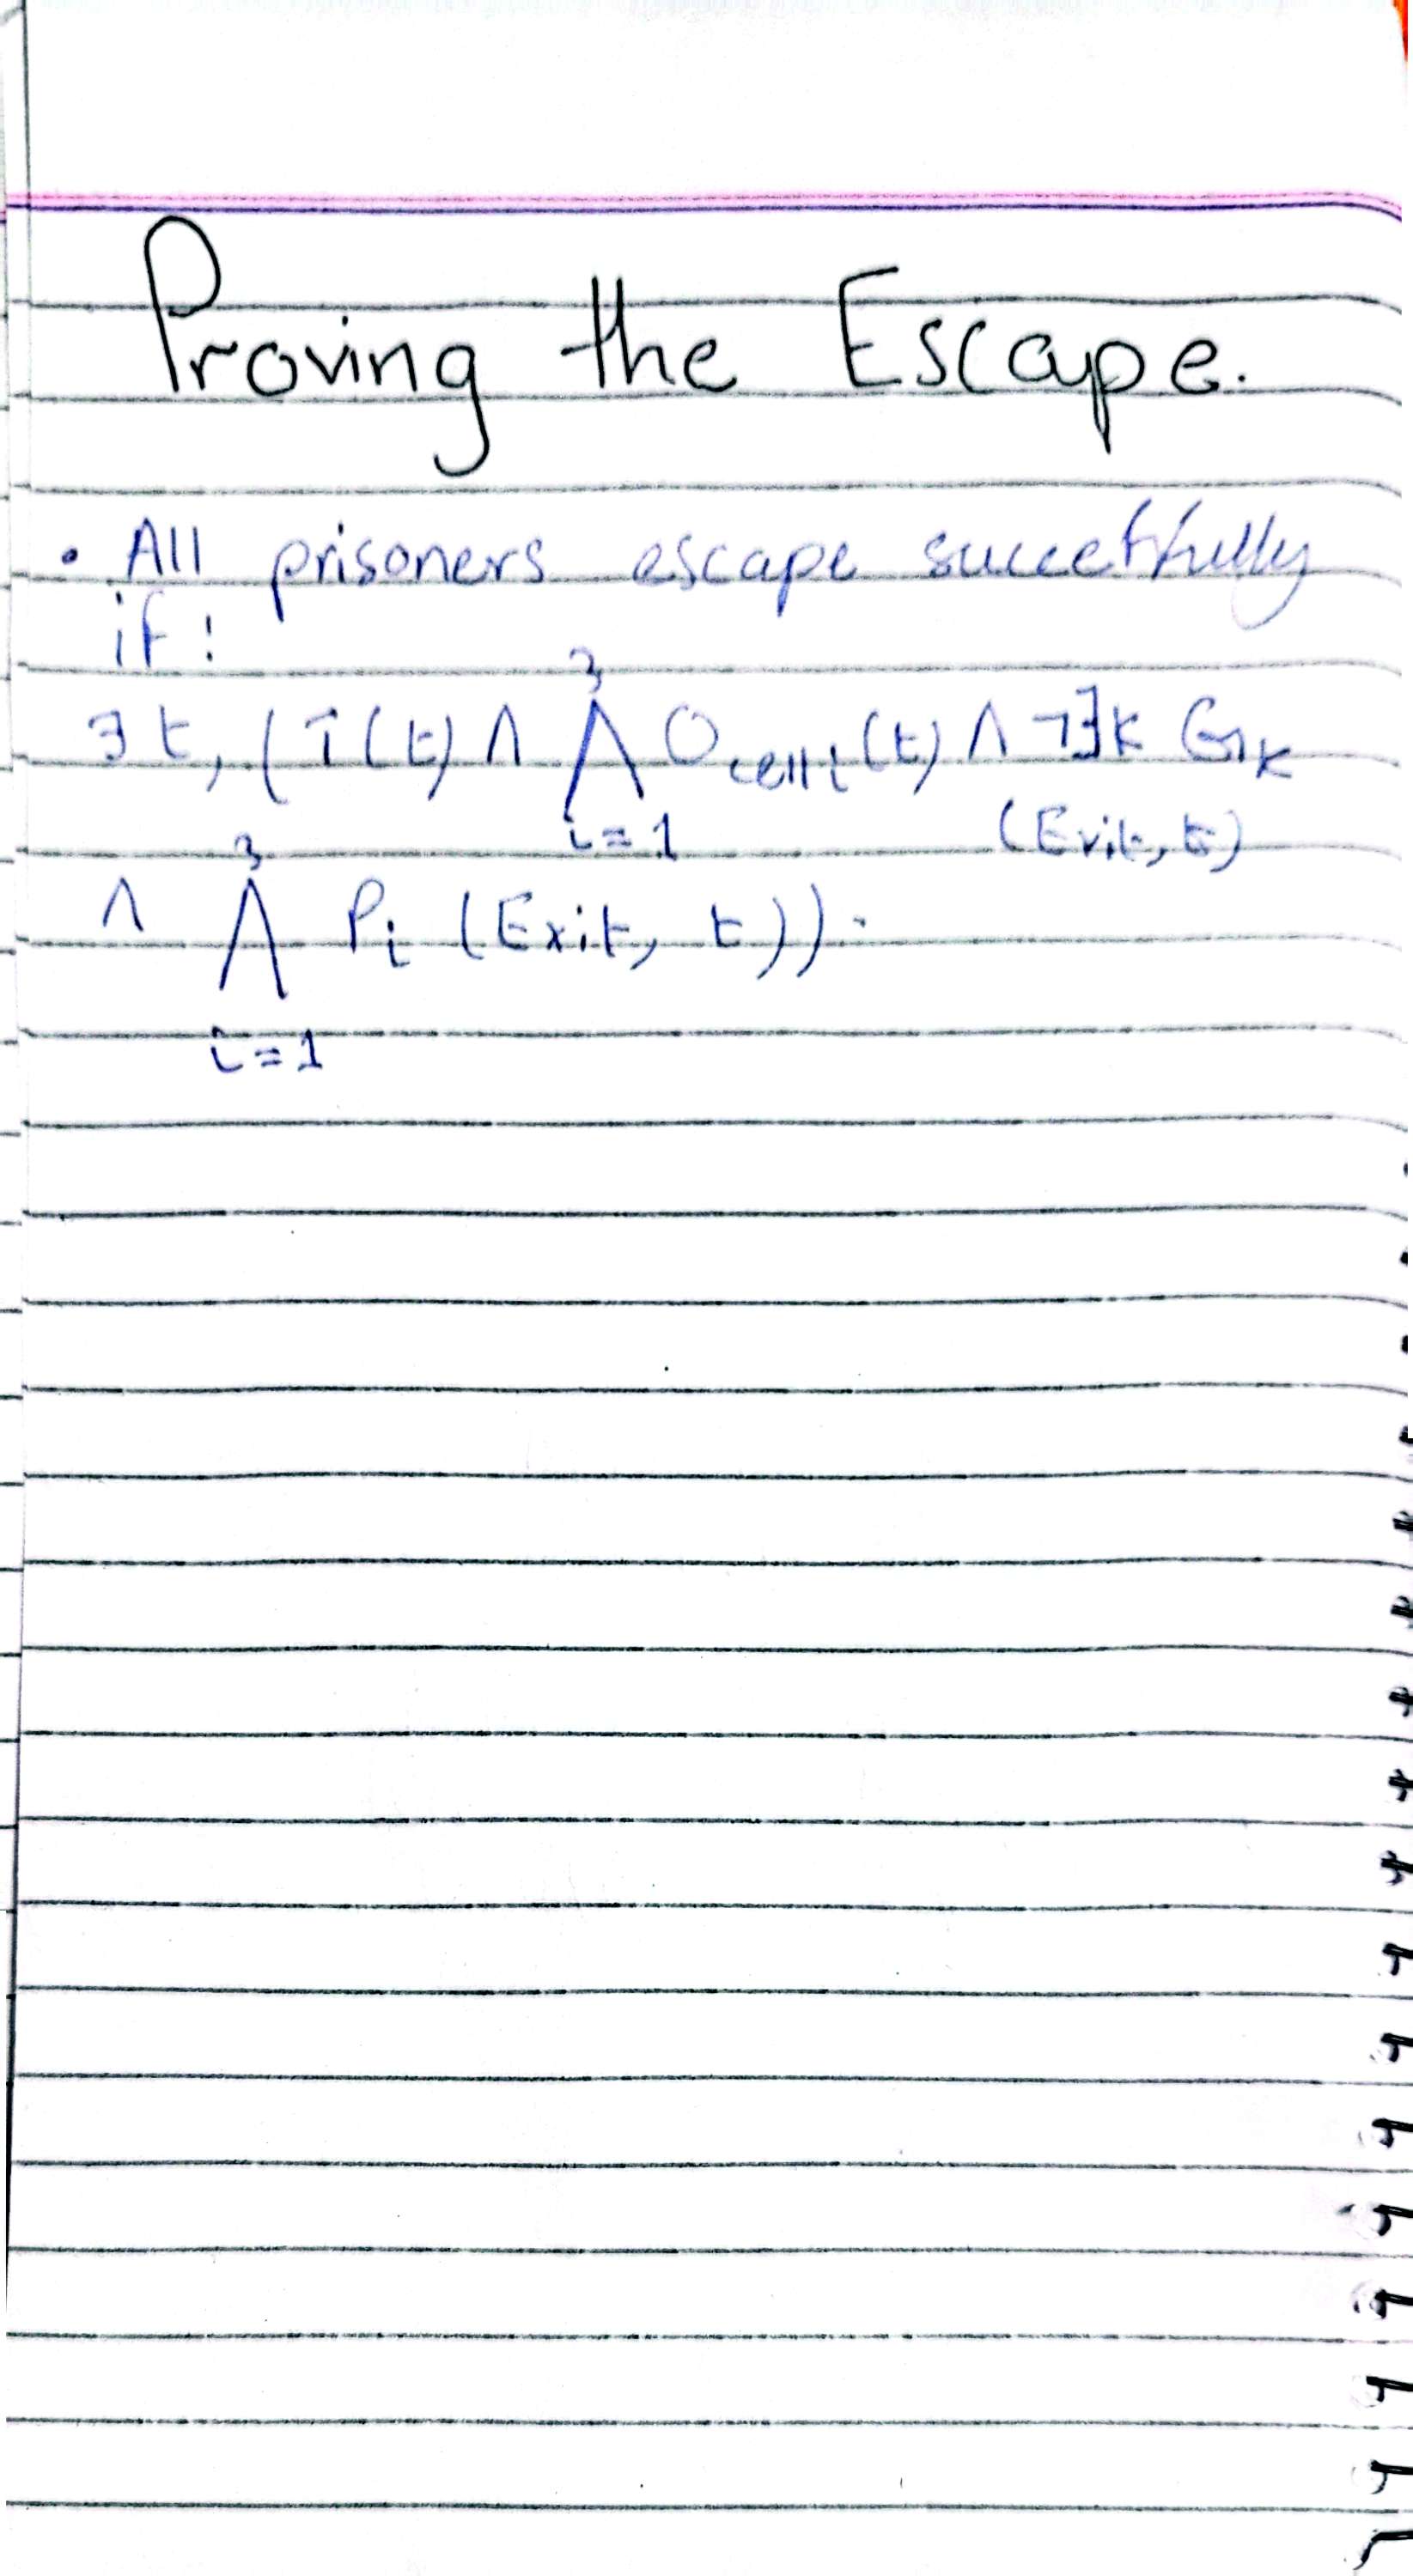 Proving the Escape.
• All prisoners escape
if:
∃t, (T(t) ∧ ⋀_{i=1}^{3} O_{cell i}(t) ∧ ¬∃k G_k
(Exit, t)
∧ ⋀_{i=1}^{3} P_i (Exit, t)).